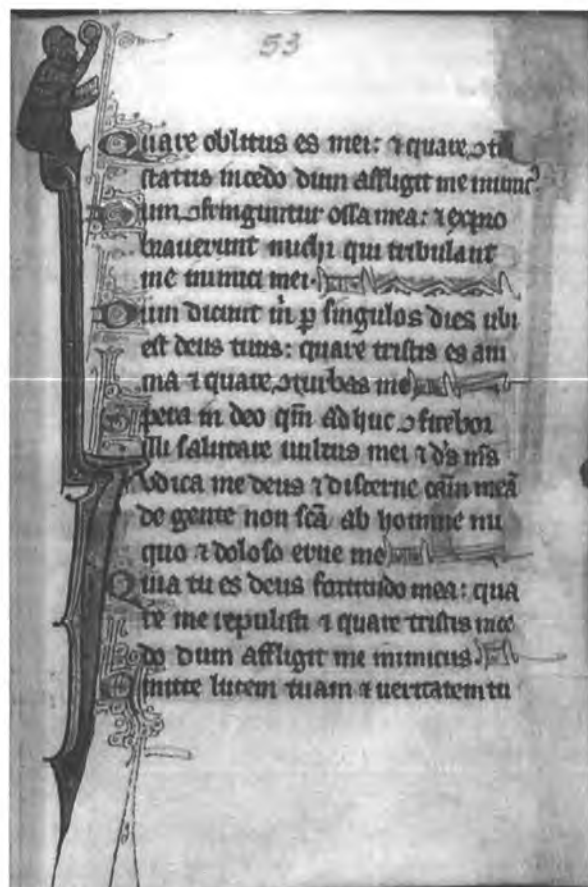 53
Quare oblitus es mei: ⁊ quare ɔtri
status incedo dum affligit me inimicꝰ
Dum ɔfringuntur ossa mea: ⁊ expro
brauerunt michi qui tribulant
me inimici mei.
Dum dicunt m̄ ꝑ singulos dies ubi
est deus tuus: quare tristis es ani
ma ⁊ quare ɔturbas me
Spera in deo qm̄ adhuc ɔfitebor
illi salutare uultus mei ⁊ ds̄ ms̄
Iudica me deus ⁊ discerne cām meā
de gente non scā ab homine ini
quo ⁊ doloso erue me
Quia tu es deus fortitudo mea: qua
re me repulisti ⁊ quare tristis ince
do dum affligit me inimicus
Emitte lucem tuam ⁊ ueritatem tu